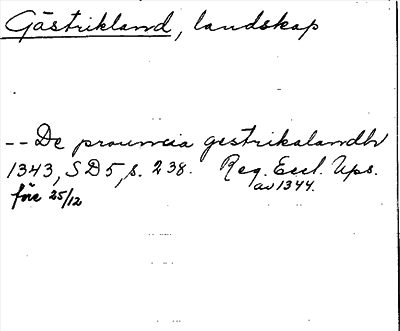 Gästrikland, landskap
-- De prouincia gestrikalandh
1343, SD5, s. 238. Reg. Eccl. Ups.
före 25/12 av 1344.